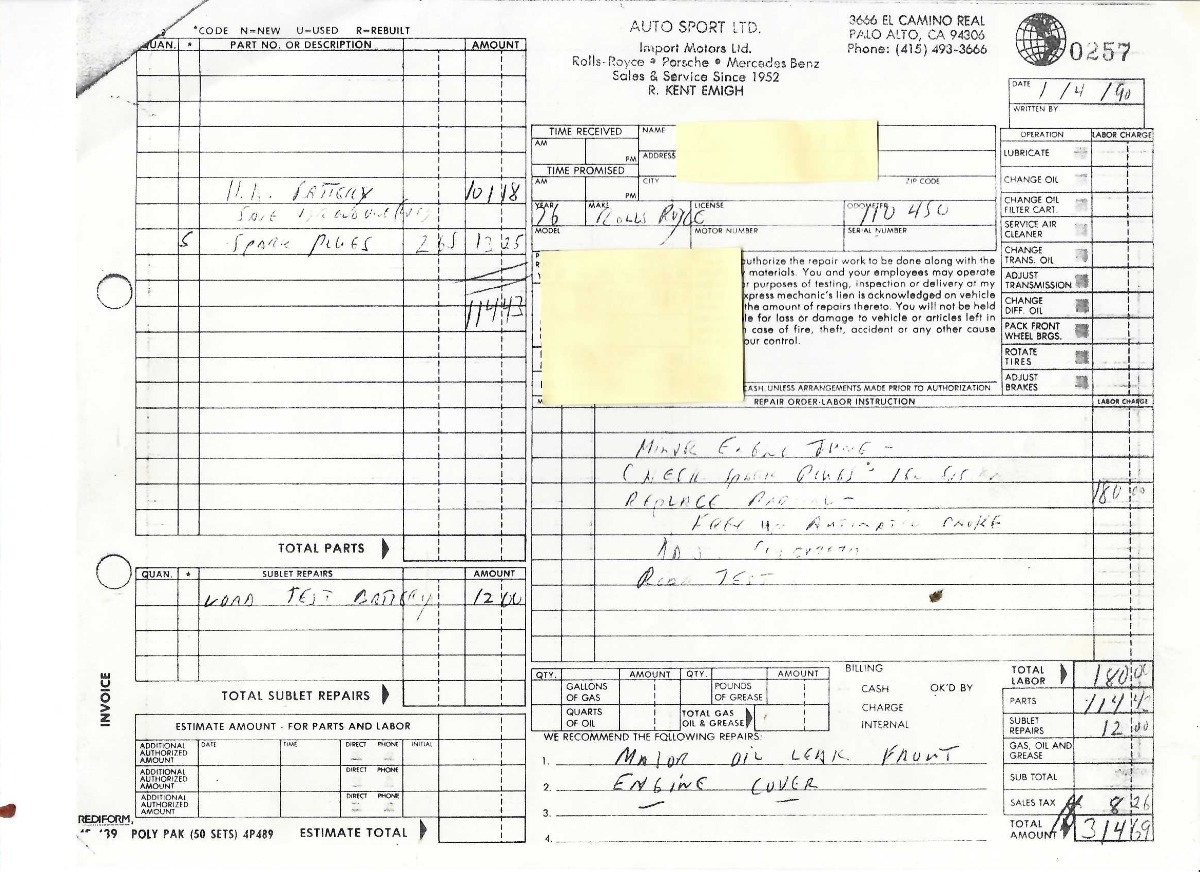 *CODE N=NEW U=USED R=REBUILT
QUAN. * PART NO. OR DESCRIPTION AMOUNT
BATTERY 101 18
5 SPARK PLUGS 2 65 13 25
114 43
TOTAL PARTS
QUAN. * SUBLET REPAIRS AMOUNT
LOAD TEST BATTERY 12 00
TOTAL SUBLET REPAIRS
ESTIMATE AMOUNT - FOR PARTS AND LABOR
ADDITIONAL AUTHORIZED AMOUNT DATE TIME DIRECT PHONE INITIAL
ADDITIONAL AUTHORIZED AMOUNT DIRECT PHONE
ADDITIONAL AUTHORIZED AMOUNT DIRECT PHONE
INVOICE
REDIFORM
POLY PAK (50 SETS) 4P489 ESTIMATE TOTAL
AUTO SPORT LTD.
Import Motors Ltd.
Rolls-Royce * Porsche * Mercedes Benz
Sales & Service Since 1952
R. KENT EMIGH
3666 EL CAMINO REAL
PALO ALTO, CA 94306
Phone: (415) 493-3666
0257
DATE 1/4/90
WRITTEN BY
TIME RECEIVED NAME
AM PM ADDRESS
TIME PROMISED
AM PM CITY ZIP CODE
YEAR 76 MAKE ROLLS ROYCE LICENSE ODOMETER 110 450
MODEL MOTOR NUMBER SERIAL NUMBER
uthorize the repair work to be done along with the
materials. You and your employees may operate
r purposes of testing, inspection or delivery at my
xpress mechanic's lien is acknowledged on vehicle
the amount of repairs thereto. You will not be held
le for loss or damage to vehicle or articles left in
case of fire, theft, accident or any other cause
our control.
CASH, UNLESS ARRANGEMENTS MADE PRIOR TO AUTHORIZATION
OPERATION LABOR CHARGE
LUBRICATE
CHANGE OIL
CHANGE OIL FILTER CART.
SERVICE AIR CLEANER
CHANGE TRANS. OIL
ADJUST TRANSMISSION
CHANGE DIFF. OIL
PACK FRONT WHEEL BRGS.
ROTATE TIRES
ADJUST BRAKES
REPAIR ORDER-LABOR INSTRUCTION LABOR CHARGE
MINOR ENGINE TUNE -
CHECK SPARK PLUGS
REPLACE 180 00
AUTOMATIC CHOKE
ROAD TEST
QTY. AMOUNT QTY. AMOUNT
GALLONS OF GAS POUNDS OF GREASE
QUARTS OF OIL TOTAL GAS OIL & GREASE
BILLING
CASH OK'D BY
CHARGE
INTERNAL
WE RECOMMEND THE FOLLOWING REPAIRS:
1. MAJOR OIL LEAK FRONT
2. ENGINE COVER
3.
4.
TOTAL LABOR 180 00
PARTS 114 43
SUBLET REPAIRS 12 00
GAS, OIL AND GREASE
SUB TOTAL
SALES TAX 8 26
TOTAL AMOUNT 314 69